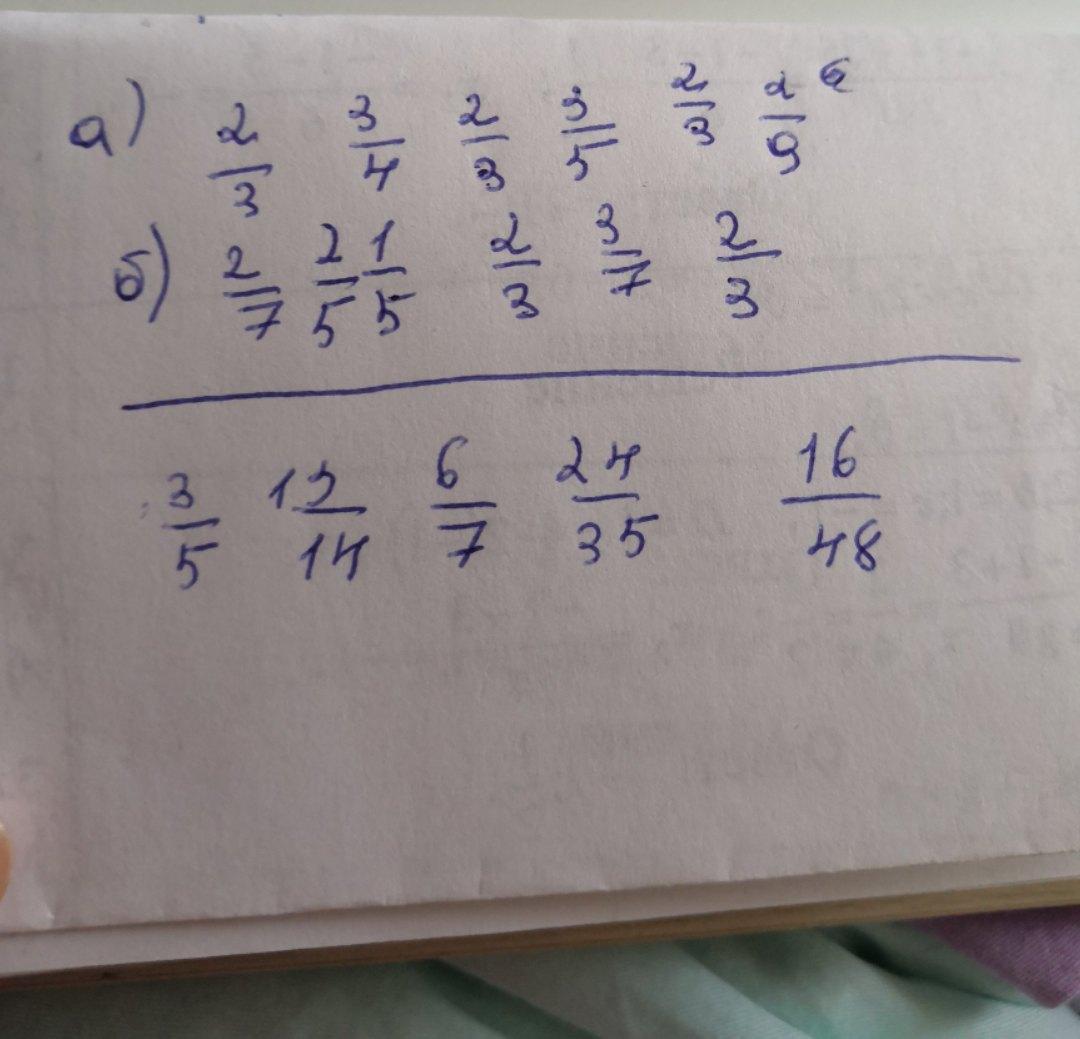 а) 2/3 3/4 2/3 3/5 2/3 2/9 6
б) 2/7 2/5 1/5 2/3 3/7 2/3
3/5 13/14 6/7 24/35 16/48